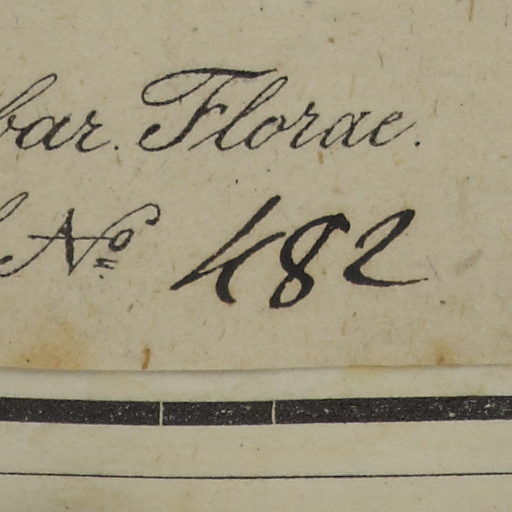 bar. Florae.
No 482